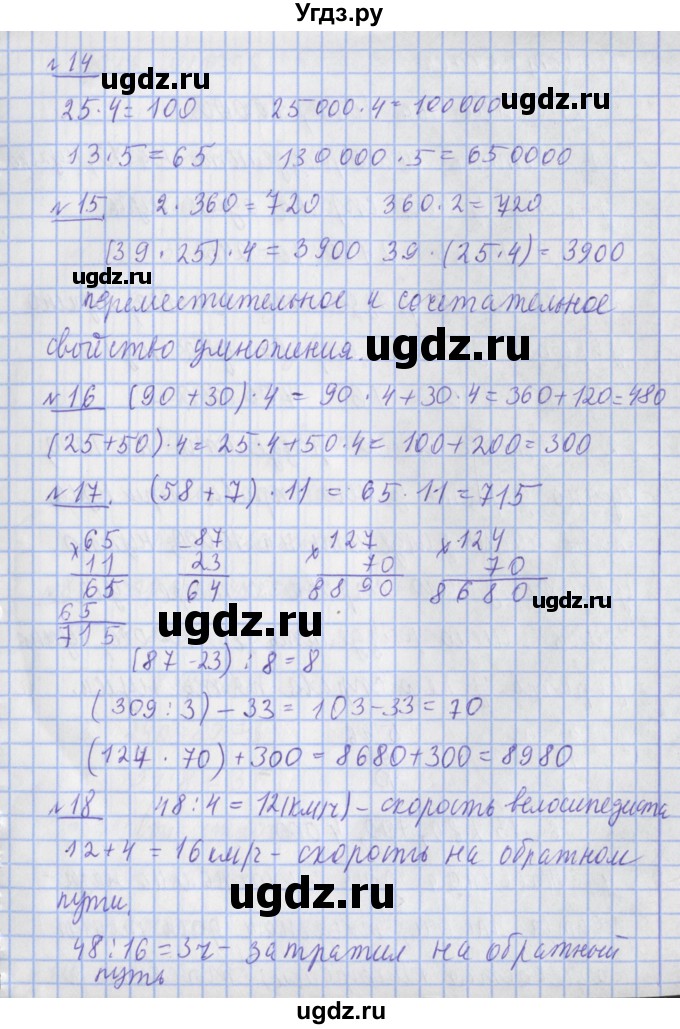 Угдз.ру
№ 14
ugdz.ru
25·4=100 25 000·4=100000
ugdz.ru
13·5=65 130 000·5=650000
№15, 2·360=720 360·2=720
(39·25)·4=3900 39·(25·4)=3900
ugdz.ru
переместительное и сочетательное
свойство умножения.
ugdz.ru
№16 (90+30)·4=90·4+30·4=360+120=480
(25+50)·4=25·4+50·4=100+200=300
№17. (58+7)·11=65·11=715
×65 −87 ×127 ×124
11 23 70 70
65 64 8890 8680
ugdz.ru
65
715
ugdz.ru
(87-23):8=8
(309:3)-33=103-33=70
(124·70)+300=8680+300=8980
№18 48:4=12(км/ч)-скорость велосипедиста
ugdz.ru
12+4=16км/ч-скорость на обратном
пути.
ugdz.ru
48:16=3ч-затратил на обратный
путь
ugdz.ru
ugdz.ru